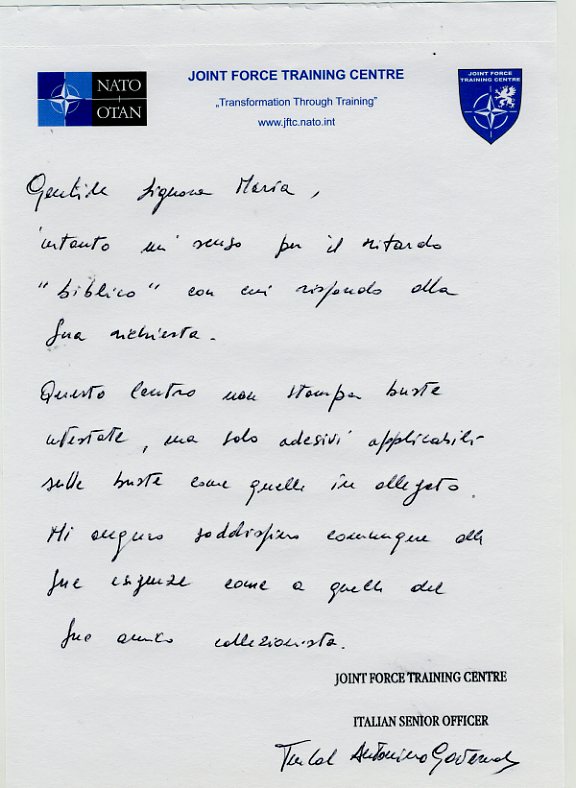 NATO
OTAN
JOINT FORCE TRAINING CENTRE
„Transformation Through Training”
www.jftc.nato.int
JOINT FORCE
TRAINING CENTRE
Gentile Signora Maria,
intanto mi scuso per il ritardo
"biblico" con cui rispondo alla
Sua richiesta.
Questo Centro non stampa buste
intestate, ma solo adesivi applicabili
sulle buste come quelle in allegato.
Mi auguro soddisfino comunque alle
Sue esigenze come a quelle del
Suo amico collezionista.
JOINT FORCE TRAINING CENTRE
ITALIAN SENIOR OFFICER
Antonino